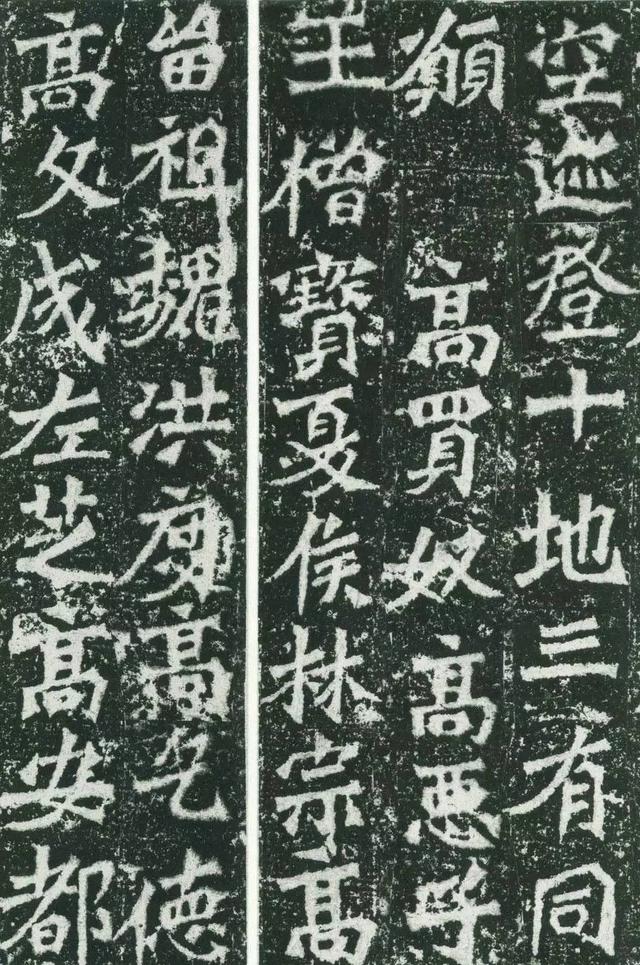 空迊登十地三有同
願 高買奴 高惡子
王僧寶夏侯林宗高
留祖魏洪度高乞德
高文成左芝高安都